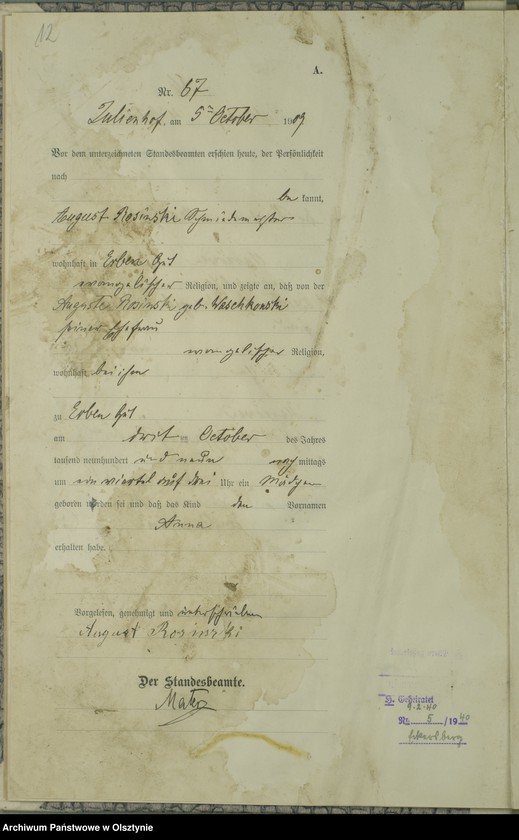 12
A.
Nr. 67
Julienhof, am 5ten October 1909
Vor dem unterzeichneten Standesbeamten erschien heute, der Persönlichkeit
nach
be kannt,
August Rosinski Schmiedemeister
wohnhaft in Erben Gut
evangelischer Religion, und zeigte an, daß von der
Auguste Rosinski geb. Waschkonski
seiner Ehefrau
evangelischer Religion,
wohnhaft bei ihm
zu Erben Gut
am dritten October des Jahres
tausend neunhundert und neun nachmittags
um ein viertel auf drei Uhr ein Mädchen
geboren worden sei und daß das Kind den Vornamen
Anna
erhalten habe.
Vorgelesen, genehmigt und unterschrieben
August Rosinski
Der Standesbeamte.
H. Geheiratet
9.2.40
Nr. 5/1940
Archiwum Państwowe w Olsztynie